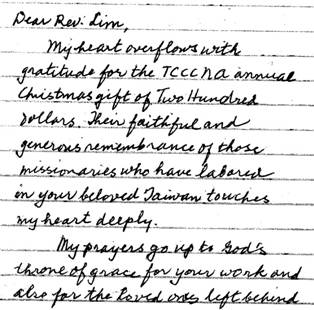 Dear Rev. Lim,
My heart overflows with
gratitude for the TCCCNA annual
Christmas gift of Two Hundred
Dollars. Their faithful and
generous remembrance of those
missionaries who have labored
in your beloved Taiwan touches
my heart deeply.
My prayers go up to God's
throne of grace for your work and
also for the loved ones left behind